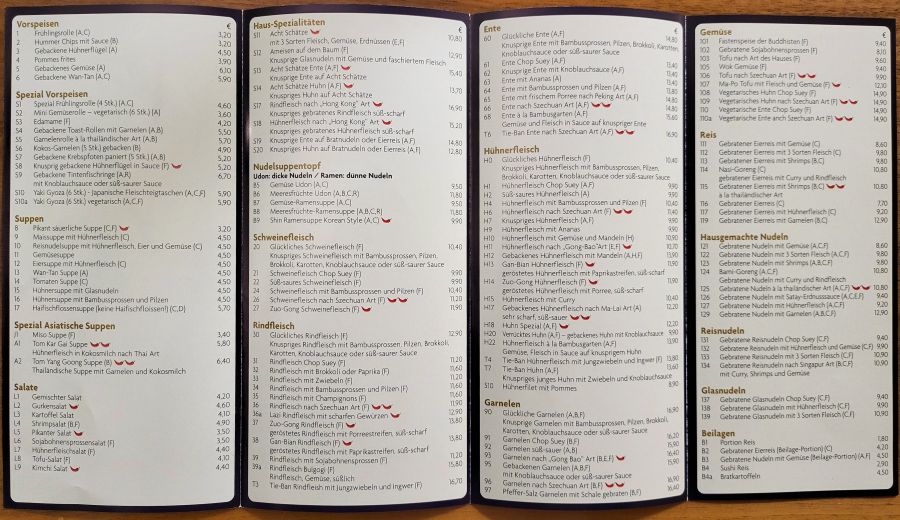 Vorspeisen €
1 Frühlingsrolle (A,C) 3,20
2 Hummer Chips mit Sauce (B) 3,20
3 Gebackene Hühnerflügel (A) 5,50
4 Pommes frites 3,90
5 Gebackenes Gemüse (A) 6,10
6 Gebackene Wan-Tan (A,C) 5,90
Spezial Vorspeisen
S1 Spezial Frühlingsrolle (4 Stk.) (A,C) 4,60
S2 Mini Gemüserolle – vegetarisch (6 Stk.) (A) 3,60
S3 Edamame (F) 4,20
S4 Gebackene Toast-Rollen mit Garnelen (A,B) 5,50
S5 Garnelenrolle à la thailändischer Art (A,B) 5,70
S6 Kokos-Garnelen (5 Stk.) gebacken (B) 4,90
S7 Gebackene Krebspfoten paniert (5 Stk.) (A,B) 5,20
S8 Knusprig gebackene Hühnerflügel in Sauce (F) 5,50
S9 Gebackene Tintenfischringe (A,R) 6,90
mit Knoblauchsauce oder süß-saurer Sauce
S10 Yaki Gyoza (6 Stk.) - Japanische Fleischteigtaschen (A,C,F) 5,90
S10a Yaki Gyoza (6 Stk.) vegetarisch (A,C,F) 5,90
Suppen
8 Pikant säuerliche Suppe (C,F) 3,20
9 Maissuppe mit Hühnerfleisch (C)
10 Reisnudelsuppe mit Hühnerfleisch, Eier und Gemüse (C) 4,50
11 Gemüsesuppe
12 Eiersuppe mit Hühnerfleisch (C)
13 Wan-Tan Suppe (A)
14 Tomaten Suppe (C)
15 Hühnersuppe mit Glasnudeln
16 Hühnersuppe mit Bambussprossen und Pilzen
17 Haifischflossensuppe (keine Haifischfloissen!) (C,D) 5,70
Spezial Asiatische Suppen
J1 Miso Suppe (F) 3,40
A1 Tom Kar Gai Suppe 5,80
Hühnerfleisch in Kokosmilch nach Thai Art
A2 Tom Yang Goong Suppe (B) 6,40
Thailändische Suppe mit Garnelen und Kokosmilch
Salate
L1 Gemischter Salat 4,20
L2 Gurkensalat 4,60
L3 Kartoffel Salat 4,10
L4 Shrimpsalat (B,F) 4,90
L5 Pikanter Salat 3,50
L6 Sojabohnensprossensalat (F)
L7 Hühnerfleischsalat (F) 4,40
L8 Tofu-Salat (F)
L9 Kimchi Salat 4,40
Haus-Spezialitäten €
S11 Acht Schätze 10,80
mit 3 Sorten Fleisch, Gemüse, Erdnüssen (E,F)
S12 Ameisen auf dem Baum (F) 12,90
Knusprige Glasnudeln mit Gemüse und faschiertem Fleisch
S13 Acht Schätze Ente (A,F) 15,40
Knusprige Ente auf Acht Schätze
S14 Acht Schätze Huhn (A,F) 13,70
Knuspriges Huhn auf Acht Schätze
S17 Rindfleisch nach „Hong Kong" Art 16,90
Knuspriges gebratenes Rindfleisch süß-scharf
S18 Hühnerfleisch nach „Hong Kong" Art 15,20
Knuspriges gebratenes Hühnerfleisch süß-scharf
S19 Knusprige Ente auf Bratnudeln oder Eierreis (A,F) 14,80
S20 Knuspriges Huhn auf Bratnudeln oder Eierreis (A,F) 12,80
Nudelsuppentopf
Udon: dicke Nudeln / Ramen: dünne Nudeln
B5 Gemüse Udon (A,C) 9,50
B6 Meeresfrüchte Udon (A,B,C,R) 11,80
B7 Gemüse-Ramensuppe (A,C) 9,50
B8 Meeresfrüchte-Ramensuppe (A,B,C,R) 11,80
B9 Shin Ramensuppe Korean Style (A,C) 9,90
Schweinefleisch
20 Glückliches Schweinefleisch (F) 10,40
Knuspriges Schweinefleisch mit Bambussprossen, Pilzen,
Brokkoli, Karotten, Knoblauchsauce oder süß-saurer Sauce
21 Schweinefleisch Chop Suey (F) 9,90
22 Süß-saures Schweinefleisch (F) 9,90
24 Schweinefleisch mit Bambussprossen und Pilzen (F) 10,40
26 Schweinefleisch nach Szechuan Art (F) 11,20
27 Zuo-Gong Schweinefleisch (F) 11,90
Rindfleisch
30 Glückliches Rindfleisch (F) 12,90
Knuspriges Rindfleisch mit Bambussprossen, Pilzen, Brokkoli,
Karotten, Knoblauchsauce oder süß-saurer Sauce
31 Rindfleisch Chop Suey (F) 11,20
32 Rindfleisch mit Brokkoli oder Paprika (F) 11,20
33 Rindfleisch mit Zwiebeln (F) 11,20
34 Rindfleisch mit Bambussprossen und Pilzen (F) 11,20
35 Rindfleisch mit Champignons (F) 11,20
36 Rindfleisch nach Szechuan Art (F) 11,90
36a Lazi Rindfleisch mit scharfen Gewürzen 12,90
37 Zuo-Gong Rindfleisch (F) 13,80
geröstetes Rindfleisch mit Porreestreifen, süß-scharf
38 Gan-Bian Rindfleisch (F) 13,80
geröstetes Rindfleisch mit Paprikastreifen, süß-scharf
39 Rindfleisch mit Sojabohnensprossen (F) 11,20
39a Rindfleisch Bulgogi (F) 15,80
Rindfleisch, Gemüse, süßlich
T3 Tie-Ban Rindfleisch mit Jungzwiebeln und Ingwer (F) 16,70
Ente €
60 Glückliche Ente (A,F) 14,80
Knusprige Ente mit Bambussprossen, Pilzen, Brokkoli, Karotten,
Knoblauchsauce oder süß-saurer Sauce
61 Ente Chop Suey (A,F) 13,40
62 Knusprige Ente mit Knoblauchsauce (A,F) 13,40
63 Ente mit Ananas (A) 13,40
64 Ente mit Bambussprossen und Pilzen (A,F) 13,40
65 Ente mit frischem Porree nach Peking Art (A,F) 13,40
66 Ente nach Szechuan Art (A,F) 14,80
68 Ente à la Bambusgarten (A,F) 14,80
Gemüse und Fleisch in Sauce auf knuspriger Ente
T6 Tie-Ban Ente nach Szechuan Art (A,F) 16,90
Hühnerfleisch
H0 Glückliches Hühnerfleisch (F)
Knuspriges Hühnerfleisch mit Bambussprossen, Pilzen,
Brokkoli, Karotten, Knoblauchsauce oder süß-saurer Sauce
H1 Hühnerfleisch Chop Suey (A,F)
H3 Süß-saures Hühnerfleisch (A)
H4 Hühnerfleisch mit Bambussprossen und Pilzen (F) 10,40
H6 Hühnerfleisch nach Szechuan Art (F) 11,20
H7 Knuspriges Hühnerfleisch (A,F) 11,20
H9 Hühnerfleisch mit Ananas
H10 Hühnerfleisch mit Gemüse und Mandeln (H) 10,90
H11 Hühnerfleisch nach „Gong-Bao"Art (E,F) 11,90
H12 Gebackenes Hühnerfleisch mit Mandeln (A,H,F)
H13 Gan-Bian Hühnerfleisch (F)
geröstetes Hühnerfleisch mit Paprikastreifen, süß-scharf
H14 Zuo-Gong Hühnerfleisch (F)
geröstetes Hühnerfleisch mit Porree, süß-scharf
H15 Hühnerfleisch mit Curry 10,40
H17 Gebackenes Hühnerfleisch nach Ma-Lai Art (A) 11,20
sehr scharf, süß-sauer
H18 Huhn Spezial (A,F) 12,20
H20 Verrücktes Huhn (A,F) – gebackenes Huhn mit Knoblauchsauce 9,90
H22 Hühnerfleisch à la Bambusgarten (A,F)
Gemüse, Fleisch in Sauce auf knusprigem Huhn
T4 Tie-Ban Hühnerfleisch mit Jungzwiebeln und Ingwer (F) 13,80
T7 Tie-Ban Huhn (A,F) 13,60
Knuspriges junges Huhn mit Zwiebeln und Knoblauchsauce
510 Hühnerfilet mit Pommes 8,90
Garnelen
90 Glückliche Garnelen (A,B,F) 16,90
Knusprige Garnelen mit Bambussprossen, Pilzen, Brokkoli,
Karotten, Knoblauchsauce oder süß-saurer Sauce
91 Garnelen Chop Suey (B,F) 16,20
92 Garnelen süß-sauer (A,B) 15,90
93 Garnelen nach „Gong Bao" Art (B,E,F) 16,90
95 Gebackenen Garnelen (A,B,F)
mit Knoblauchsauce oder süß-saurer Sauce
96 Garnelen nach Szechuan Art (B,F) 16,90
97 Pfeffer-Salz Garnelen mit Schale gebraten (B,F) 16,40
Gemüse €
101 Fastenspeise der Buddhisten (F) 9,40
102 Gebratene Sojabohnensprossen (F) 8,10
103 Tofu nach Art des Hauses (F) 9,60
105 Wok Gemüse (F) 9,90
106 Tofu nach Szechuan Art (F) 10,90
107 Ma-Po Tofu mit Fleisch und Gemüse (F) 12,10
108 Vegetarisches Huhn Chop Suey (F) 14,90
109 Vegetarisches Huhn nach Szechuan Art (F) 14,90
110 Vegetarische Ente Chop Suey (F) 14,90
110a Vegetarische Ente anch Szechuan Art (F) 14,90
Reis
111 Gebratener Eierreis mit Gemüse (C)
112 Gebratener Eierreis mit 3 Sorten Fleisch (C)
113 Gebratener Eierreis mit Shrimps (B,C)
114 Nasi-Goreng (C)
gebratener Eierreis mit Curry und Rindfleisch
115 Gebratener Eierreis mit Shrimps (B,C) 10,80
à la thailändischer Art
116 Gebratener Eierreis (C) 7,70
117 Gebratener Eierreis mit Hühnerfleisch (C) 9,20
119 Gebratener Eierreis mit Garnelen (B,C) 12,90
Hausgemachte Nudeln
121 Gebratene Nudeln mit Gemüse (A,C,F) 8,60
122 Gebratene Nudeln mit 3 Sorten Fleisch (A,C,F) 9,90
123 Gebratene Nudeln mit Shrimps (A,B,C,F) 9,90
124 Bami-Goreng (A,C,F) 10,80
Gebratene Nudeln mit Curry und Rindfleisch
125 Gebratene Nudeln à la thailändischer Art (A,C,F) 10,80
126 Gebratene Nudeln mit Satay-Erdnusssauce (A,C,E,F) 9,90
127 Gebratene Nudeln mit Hühnerfleisch (A,C,F) 9,20
129 Gebratene Nudeln mit Garnelen (A,B,C,F) 12,90
Reisnudeln
131 Gebratene Reisnudeln Chop Suey (C,F) 9,40
132 Gebratene Reisnudeln mit Hühnerfleisch und Gemüse (C,F) 9,90
133 Gebratene Reisnudeln mit 3 Sorten Fleisch (C,F) 9,90
134 Gebratene Reisnudeln nach Singapur Art (B,C,F) 10,90
mit Curry, Shrimps und Gemüse
Glasnudeln
137 Gebratene Glasnudeln Chop Suey (C,F) 9,40
138 Gebratene Glasnudeln mit Hühnerfleisch (C,F) 9,90
139 Gebratene Glasnudeln mit 3 Sorten Fleisch (C,F) 10,90
Beilagen
B1 Portion Reis 1,80
B2 Gebratener Eierreis (Beilage-Portion) (C) 4,20
B3 Gebratene Nudeln mit Gemüse (Beilage-Portion) (A,F) 4,50
B4 Sushi Reis 2,90
B4a Bratkartoffeln 4,50